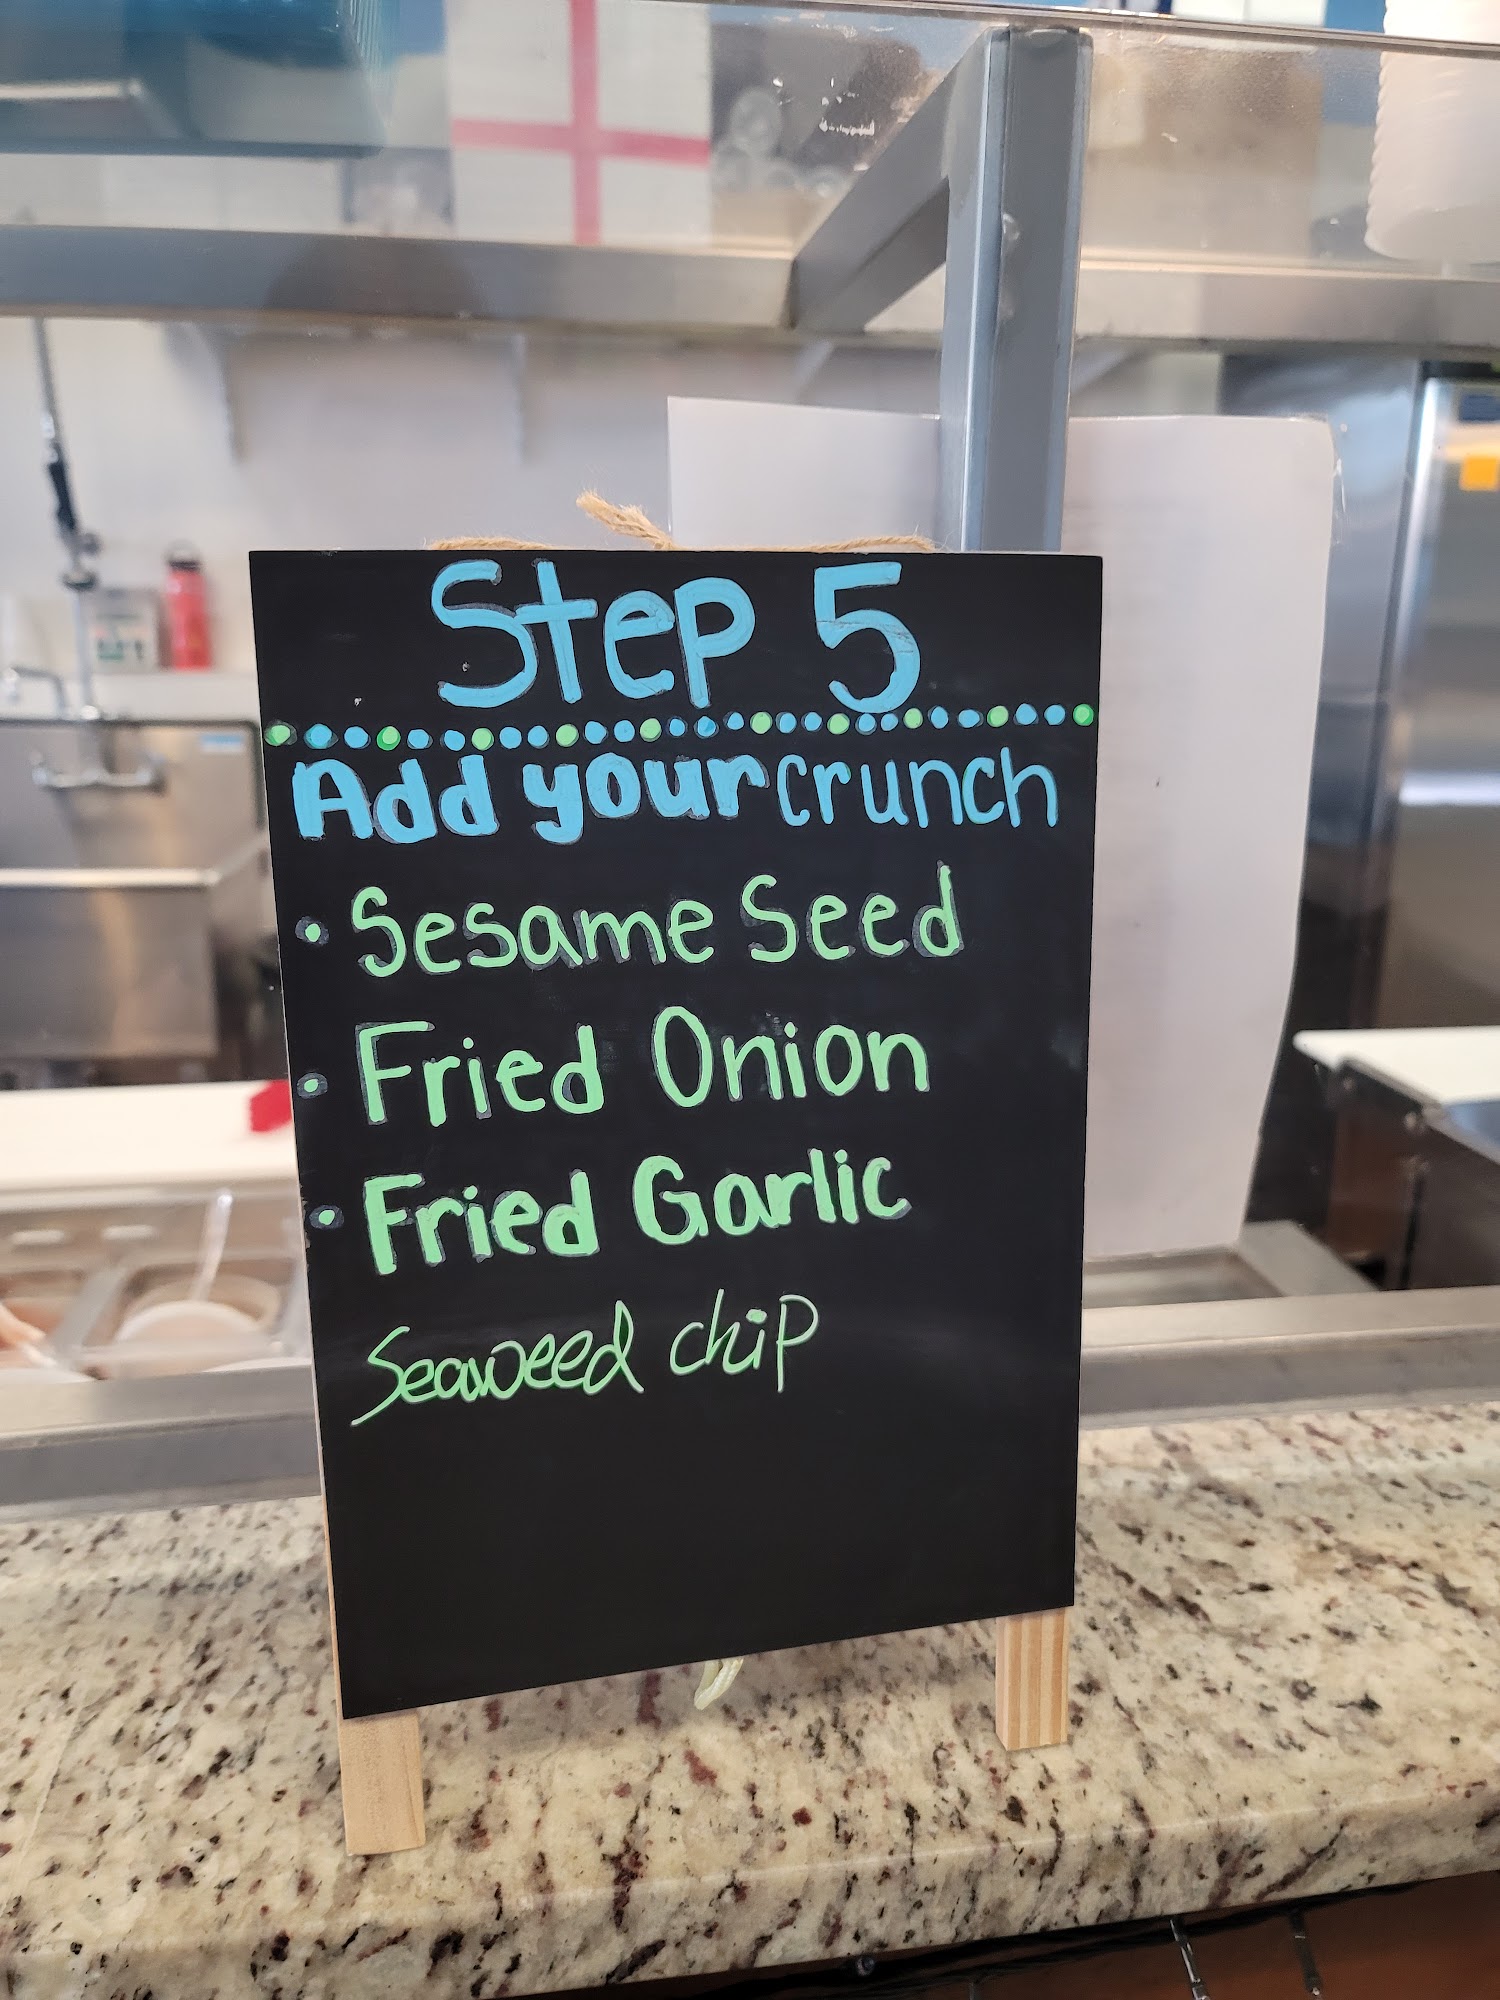 Step 5
Add your crunch
• Sesame Seed
• Fried Onion
• Fried Garlic
Seaweed chip